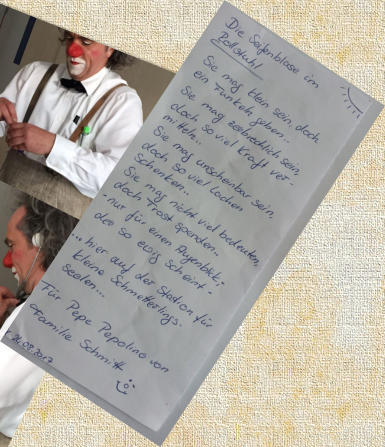 Die Seifenblase im
Rollstuhl
Sie mag klein sein, doch
ein Funkeln geben...
Sie mag zerbrechlich sein,
doch so viel Kraft ver-
mitteln..
Sie mag unscheinbar sein,
doch so viel Lachen
schenken..
Sie mag nicht viel bedeuten,
doch Trost spenden..
nur für einen Augenblick,
der so ewig scheint..
...hier auf der Station für
kleine Schmetterlings-
seelen...
Für Pepe Pepolino von
Familie Schmitt
26.08.2017